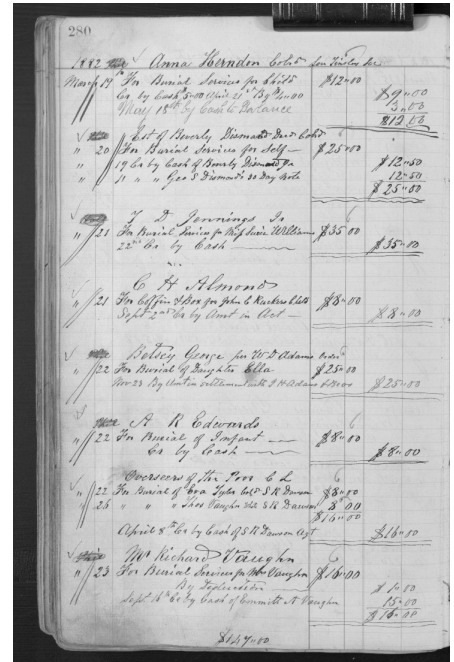 280
1882 Anna Herndon Cold
March 19 For Burial Services for Child $12"00
Cr by Cash $5-00 April 21st By $4"00 $9"00
May 18th by Cash to Balance 3"00
$12"00
Est of Beverly Dismond Decd Cold
" 20 For Burial Services for Self — $25"00
19 Cr by Cash of Beverly Dismond Jr $12"50
" " " Geo S Dismonds 30 Day Note 12"50
$25"00
T D Jennings Jr
" 21 For Burial Services for Williams $35"00
22nd Cr by Cash $35"00
C H Almond
" 21 For Coffin & Box for John C Ruckers Child $8"00
Sept 2nd Cr by Amt in Act — $8"00
Betsey George per W D Adams order
" 22 For Burial of Daughter Ella $25"00
Nov 23 By Amt in settlement with $25"00
A R Edwards
" 22 For Burial of Infant $8"00
Cr by Cash $8"00
Overseers of the Poor C L
" 22 For Burial of Eva Tyler Cold S R Dawson $8"00
" 26 " " " Thos Vaughn S R Dawson 8"00
$16"00
April 8th Cr by Cash of S R Dawson Agt $16"00
Mr Richard Vaughn
" 23 For Burial Services for Vaughn $16"00
By $1"00
Sept 16th Cr by Cash of Emmitt N Vaughn 15"00
$16"00
$147"00